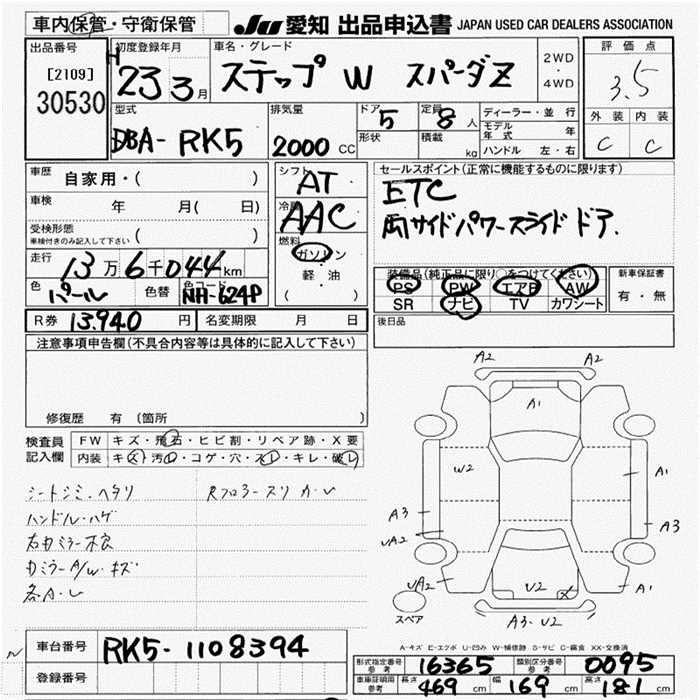 車内保管・守衛保管 JU 愛知 出品申込書 JAPAN USED CAR DEALERS ASSOCIATION
出品番号 初度登録年月 車名・グレード 評価点
[2109] H 23 3月 ステップ W スパーダZ 2WD・4WD 3.5
30530
型式 排気量 ドア 定員 ディーラー・並行 外装 内装
DBA- RK5 2000 CC 5 8人 モデル年式 年 C C
形状 積載 kg ハンドル 左・右
車歴 自家用・( ) シフト AT セールスポイント(正常に機能するものに限ります)
車検 年 月( 日) 冷房 AAC ETC
受検形態 ( ) 両サイドパワースライドドア.
車検付きのみ記入して下さい
走行 13万6千044km 燃料 ガソリン 装備品(純正品に限り○をつけてください) 新車保証書
軽・油 PS PW エアB AW 有・無
色 パール 色替 色コード NH-624P ( ) SR ナビ TV カワシート
R券 13,940 円 名変期限 月 日 後日品
注意事項申告欄(不具合内容等は具体的に記入して下さい)
修復歴 有 (箇所 )
検査員 FW キズ・飛石・ヒビ割・リペア跡・X要
記入欄 内装 キズ・汚・コゲ・穴・スレ・キレ・破レ
シートシミ・ヘタリ
ハンドル・ハゲ
右カミラー不良
カミラーA/W・キズ
各A・U
A2 A2
A1
W2 A1
A3 A3
UA2
UA2 U2 A1
スペア A3・U2
A-キズ E-エクボ U-凹み W-補修跡 S-サビ C-腐食 XX-交換済
車台番号 RK5-1108394
登録番号
形式指定番号 参考 16365 類別区分番号 参考 0095
車庫証明用 参考 長さ 469 cm 幅 169 cm 高さ 181 cm